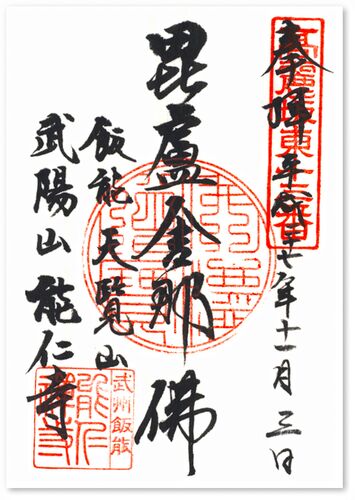 奉拝 平成廿七年十一月三日
毘盧舎那佛
飯能 天覧山
武陽山 能仁寺
武州飯能
能仁寺